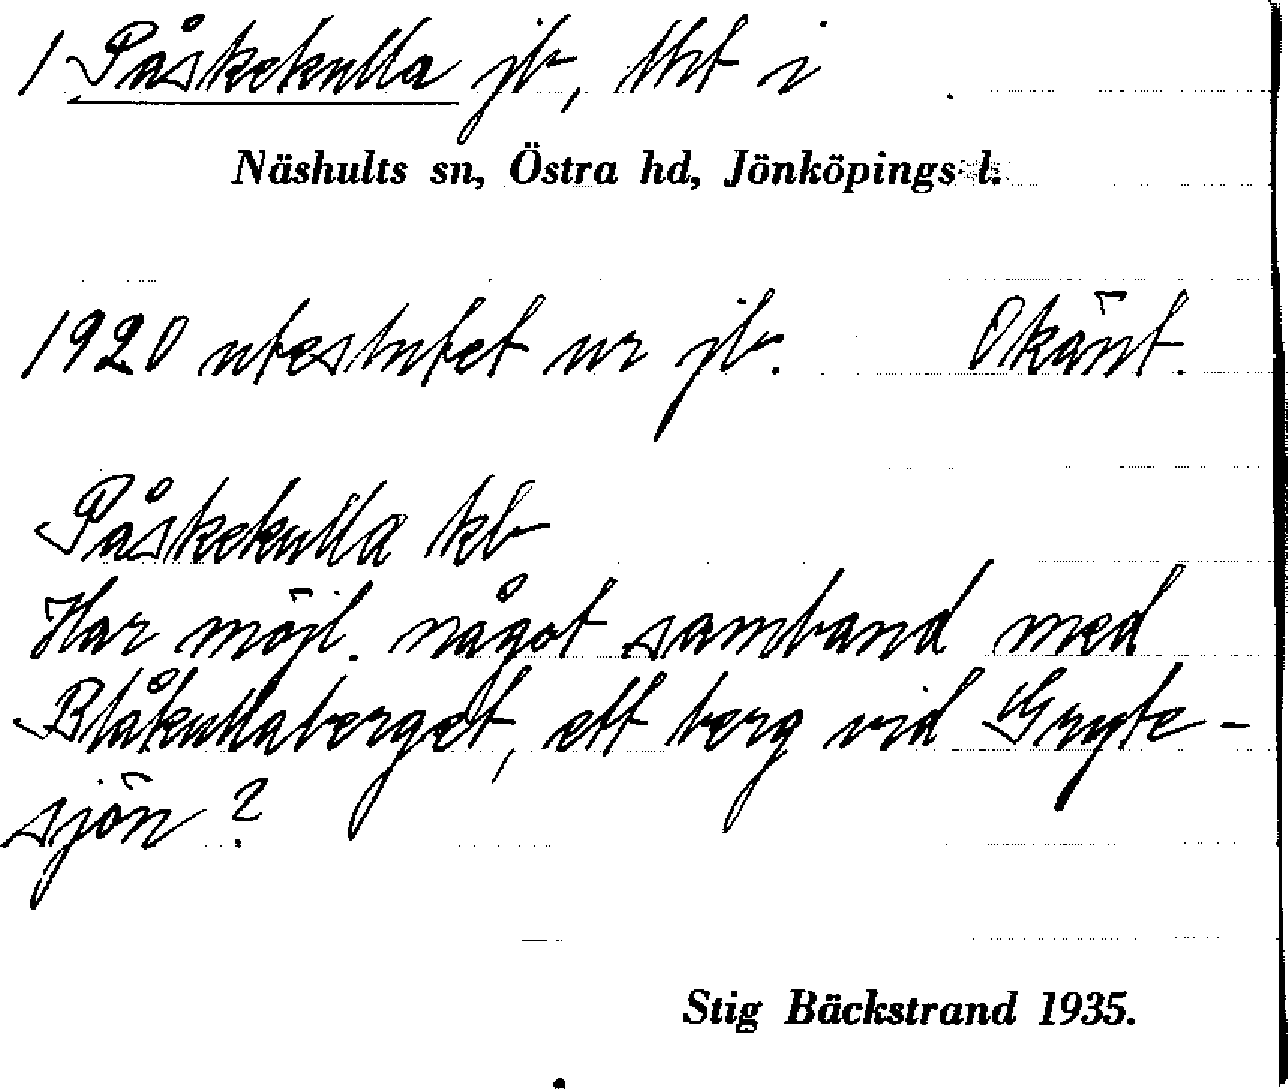 1 Påskekulla jb, tht i
Näshults sn, Östra hd, Jönköpings l.
1920 uteslutet ur jb. Okänt.
Påskekulla kb
Har möjl. något samband med
Blåkullaberget, ett berg vid Gryte-
sjön?
Stig Bäckstrand 1935.